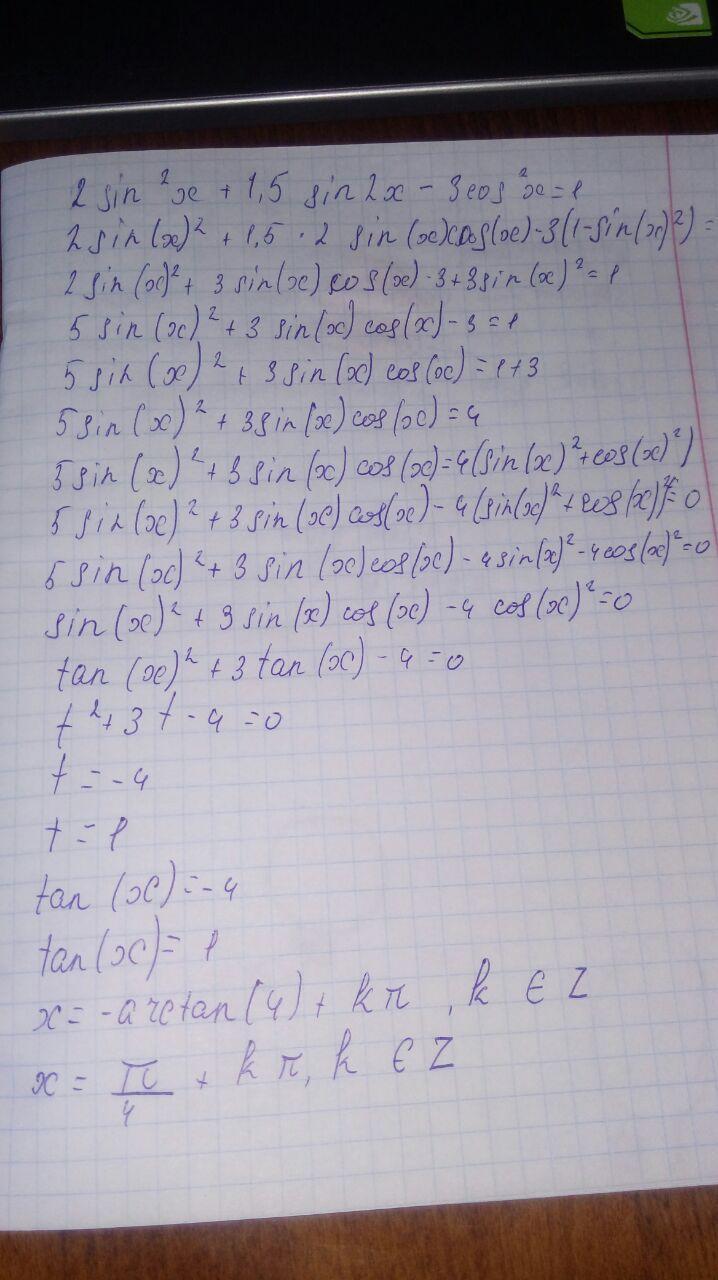 2 sin²x + 1,5 sin2x - 3cos²x = 1
2 sin(x)² + 1,5 · 2 sin(x)cos(x) - 3(1-sin(x)²) =
2 sin(x)² + 3 sin(x) cos(x) - 3 + 3sin(x)² = 1
5 sin(x)² + 3 sin(x) cos(x) - 3 = 1
5 sin(x)² + 3 sin(x) cos(x) = 1+3
5 sin(x)² + 3sin(x) cos(x) = 4
5 sin(x)² + 3 sin(x) cos(x) = 4(sin(x)² + cos(x)²)
5 sin(x)² + 3 sin(x) cos(x) - 4(sin(x)² + cos(x)²) = 0
5 sin(x)² + 3 sin(x)cos(x) - 4sin(x)² - 4cos(x)² = 0
sin(x)² + 3 sin(x) cos(x) - 4 cos(x)² = 0
tan(x)² + 3 tan(x) - 4 = 0
t² + 3t - 4 = 0
t = -4
t = 1
tan(x) = -4
tan(x) = 1
x = -arctan(4) + kπ, k ∈ Z
x = π/4 + kπ, k ∈ Z